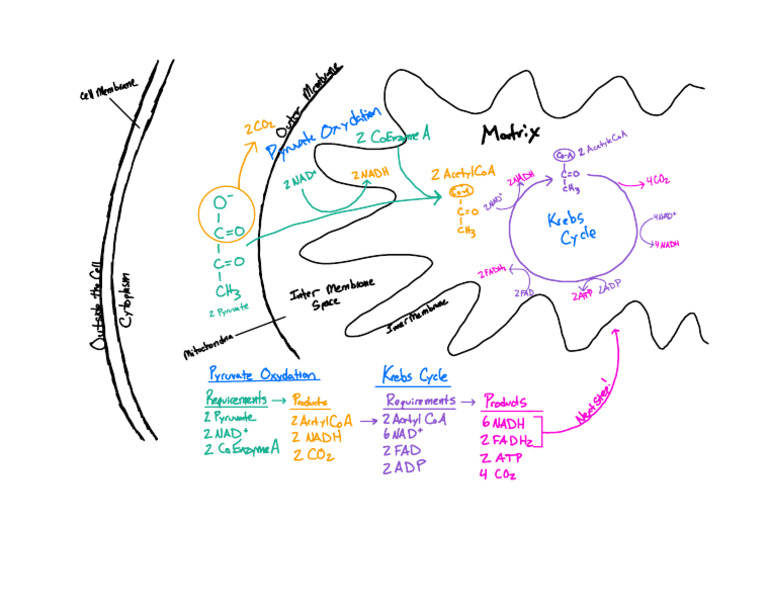 Cell Membrane
Outer Membrane
2 CO₂
Pyruvate Oxydation
2 CoEnzyme A
Matrix
2 NAD⁺
2 NADH
2 Acetyl CoA
Co-A
C=O
CH₃
O⁻
C=O
C=O
CH₃
2 Pyruvate
2 NAD⁺
2 NADH
Co-A
2 Acetyl CoA
C=O
CH₃
4 CO₂
Krebs
Cycle
4 NAD⁺
4 NADH
2 FADH₂
2 FAD
2 ATP
2 ADP
Outside the Cell
Cytoplasm
Inter Membrane
Space
Inner Membrane
Mitochondria
Pyruvate Oxydation
Requirements → Products
2 Pyruvate
2 NAD⁺
2 CoEnzyme A
2 Acetyl CoA
2 NADH
2 CO₂
Krebs Cycle
Requirements → Products
2 Acetyl CoA
6 NAD⁺
2 FAD
2 ADP
6 NADH
2 FADH₂
2 ATP
4 CO₂
Next Step!